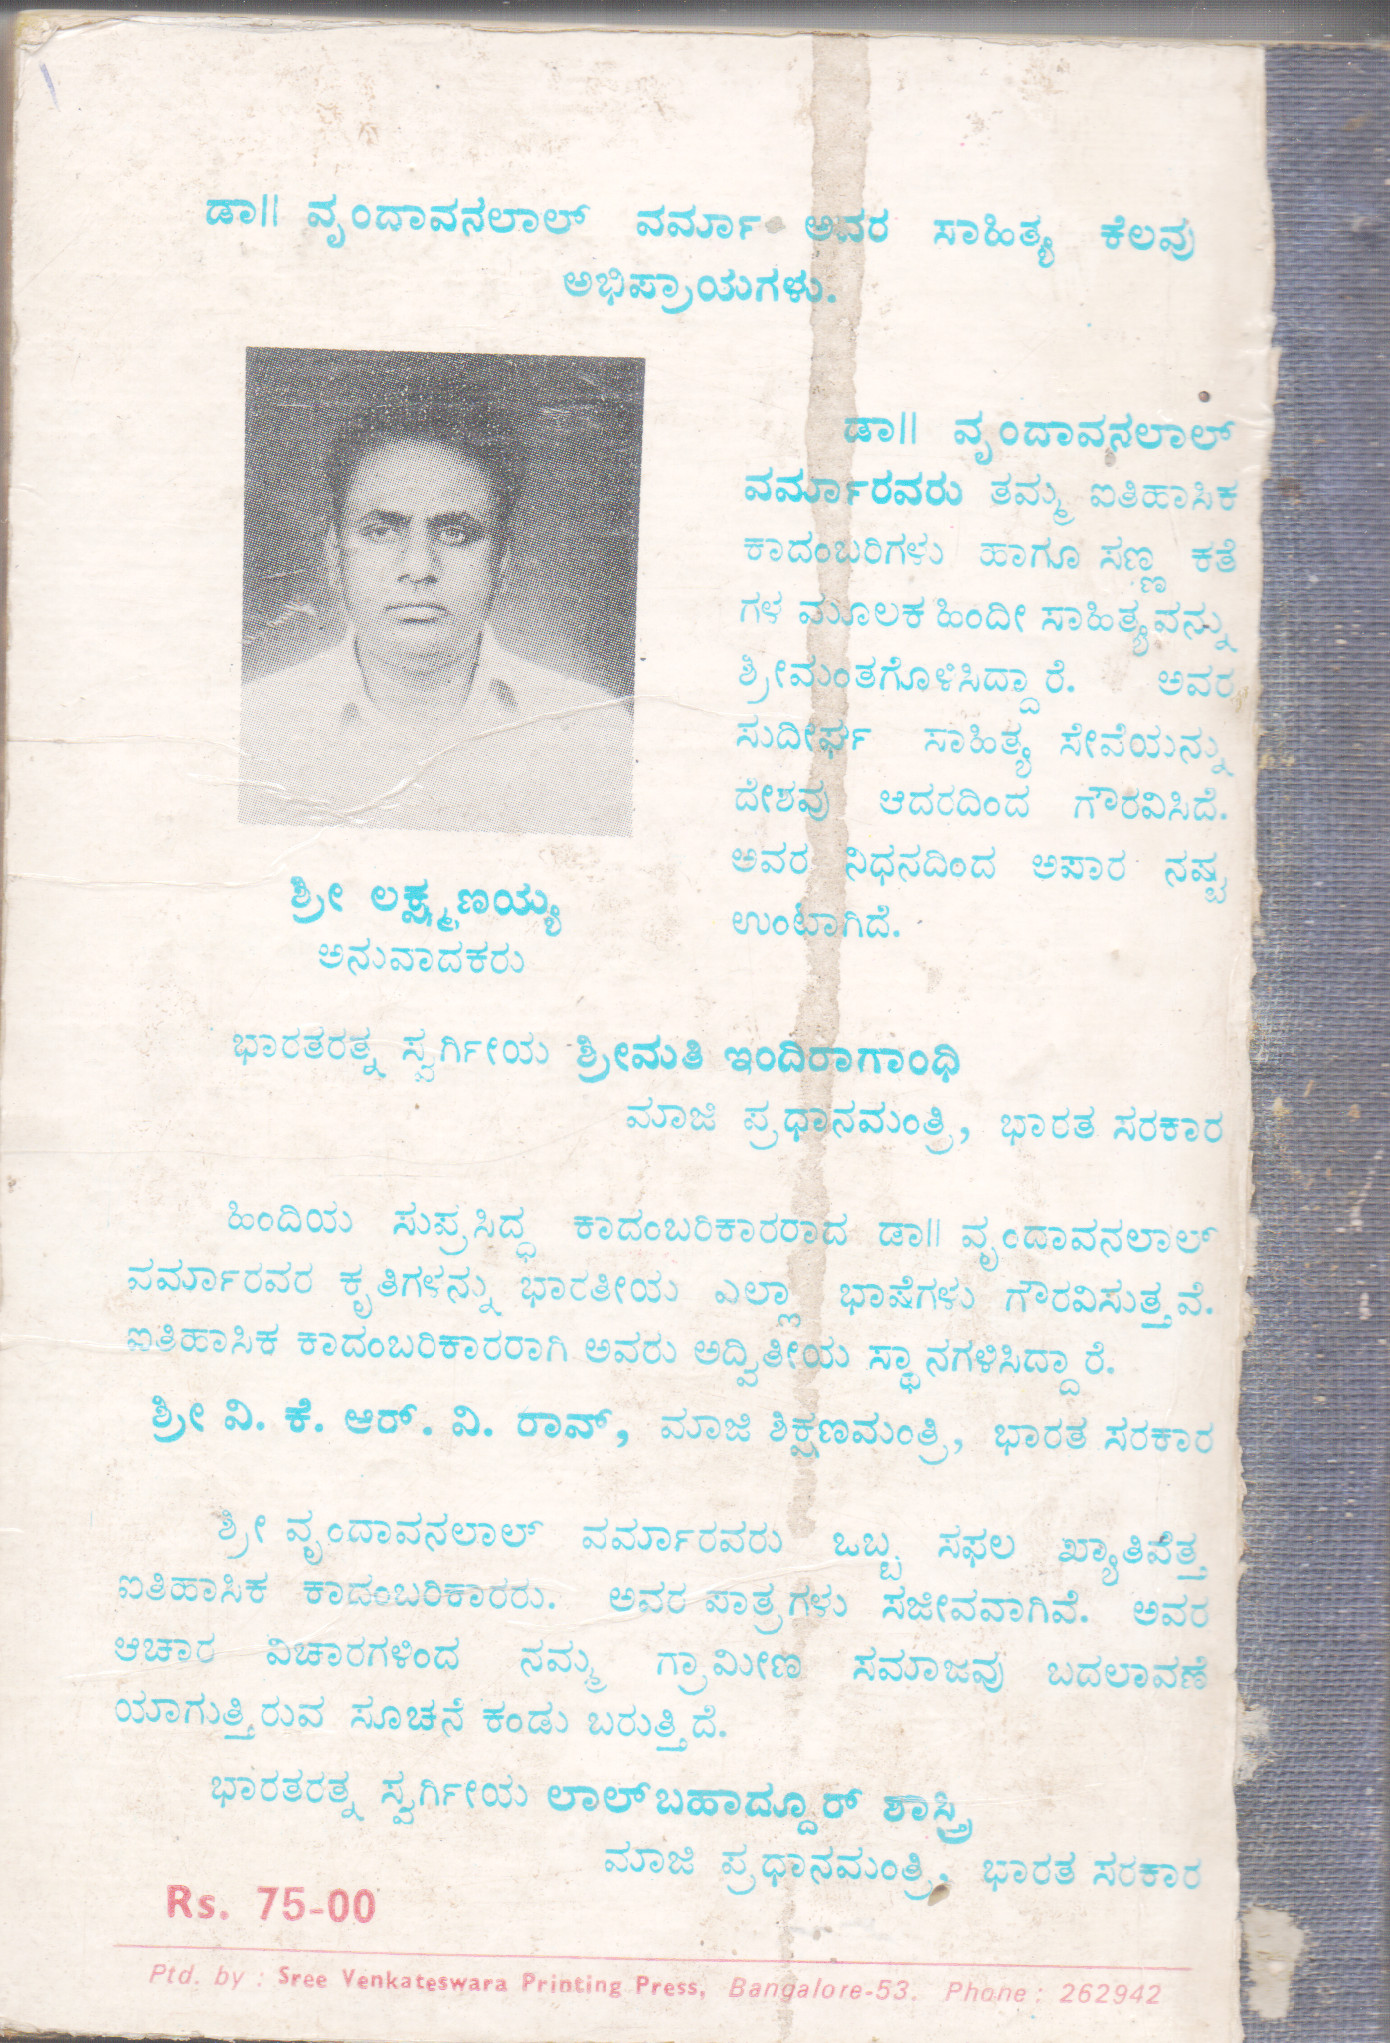 ಡಾ|| ವೃಂದಾವನಲಾಲ್ ವರ್ಮಾ ಅವರ ಸಾಹಿತ್ಯ ಕೆಲವು
ಅಭಿಪ್ರಾಯಗಳು.
ಡಾ|| ವೃಂದಾವನಲಾಲ್
ವರ್ಮಾರವರು ತಮ್ಮ ಐತಿಹಾಸಿಕ
ಕಾದಂಬರಿಗಳು ಹಾಗೂ ಸಣ್ಣ ಕತೆ
ಗಳ ಮೂಲಕ ಹಿಂದೀ ಸಾಹಿತ್ಯವನ್ನು
ಶ್ರೀಮಂತಗೊಳಿಸಿದ್ದಾರೆ. ಅವರ
ಸುದೀರ್ಘ ಸಾಹಿತ್ಯ ಸೇವೆಯನ್ನು
ದೇಶವು ಆದರದಿಂದ ಗೌರವಿಸಿದೆ.
ಅವರ ನಿಧನದಿಂದ ಅಪಾರ ನಷ್ಟ
ಉಂಟಾಗಿದೆ.
ಶ್ರೀ ಲಕ್ಷ್ಮಣಯ್ಯ
ಅನುವಾದಕರು
ಭಾರತರತ್ನ ಸ್ವರ್ಗೀಯ ಶ್ರೀಮತಿ ಇಂದಿರಾಗಾಂಧಿ
ಮಾಜಿ ಪ್ರಧಾನಮಂತ್ರಿ, ಭಾರತ ಸರಕಾರ
ಹಿಂದಿಯ ಸುಪ್ರಸಿದ್ಧ ಕಾದಂಬರಿಕಾರರಾದ ಡಾ|| ವೃಂದಾವನಲಾಲ್
ವರ್ಮಾರವರ ಕೃತಿಗಳನ್ನು ಭಾರತೀಯ ಎಲ್ಲಾ ಭಾಷೆಗಳು ಗೌರವಿಸುತ್ತವೆ.
ಐತಿಹಾಸಿಕ ಕಾದಂಬರಿಕಾರರಾಗಿ ಅವರು ಅದ್ವಿತೀಯ ಸ್ಥಾನಗಳಿಸಿದ್ದಾರೆ.
ಶ್ರೀ ವಿ. ಕೆ. ಆರ್. ವಿ. ರಾವ್, ಮಾಜಿ ಶಿಕ್ಷಣಮಂತ್ರಿ, ಭಾರತ ಸರಕಾರ
ಶ್ರೀ ವೃಂದಾವನಲಾಲ್ ವರ್ಮಾರವರು ಒಬ್ಬ ಸಫಲ ಖ್ಯಾತಿವೆತ್ತ
ಐತಿಹಾಸಿಕ ಕಾದಂಬರಿಕಾರರು. ಅವರ ಪಾತ್ರಗಳು ಸಜೀವವಾಗಿವೆ. ಅವರ
ಆಚಾರ ವಿಚಾರಗಳಿಂದ ನಮ್ಮ ಗ್ರಾಮೀಣ ಸಮಾಜವು ಬದಲಾವಣೆ
ಯಾಗುತ್ತಿರುವ ಸೂಚನೆ ಕಂಡು ಬರುತ್ತಿದೆ.
ಭಾರತರತ್ನ ಸ್ವರ್ಗೀಯ ಲಾಲ್‌ಬಹಾದ್ದೂರ್ ಶಾಸ್ತ್ರಿ
ಮಾಜಿ ಪ್ರಧಾನಮಂತ್ರಿ, ಭಾರತ ಸರಕಾರ
Rs. 75-00
Ptd. by : Sree Venkateswara Printing Press, Bangalore-53. Phone : 262942